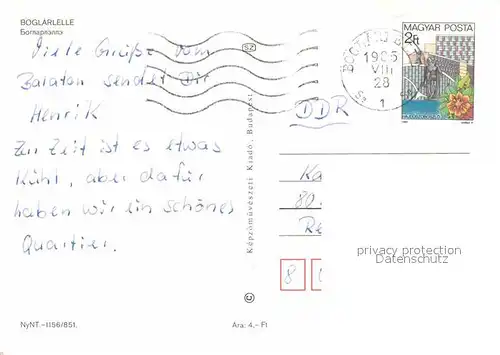 BOGLÁRLELLE
Богларлелле
Viele Grüße vom
Balaton sendet Dir
Henrik
Zur Zeit ist es etwas
kühl, aber dafür
haben wir ein schönes
Quartier.
NyNT.–1156/851.
Ára: 4,– Ft
Képzőművészeti Kiadó, Budapest
©
SZ
MAGYAR POSTA
2 Ft
1985
VIII
28
1
DDR
Ka
80
Re
8
privacy protection
Datenschutz